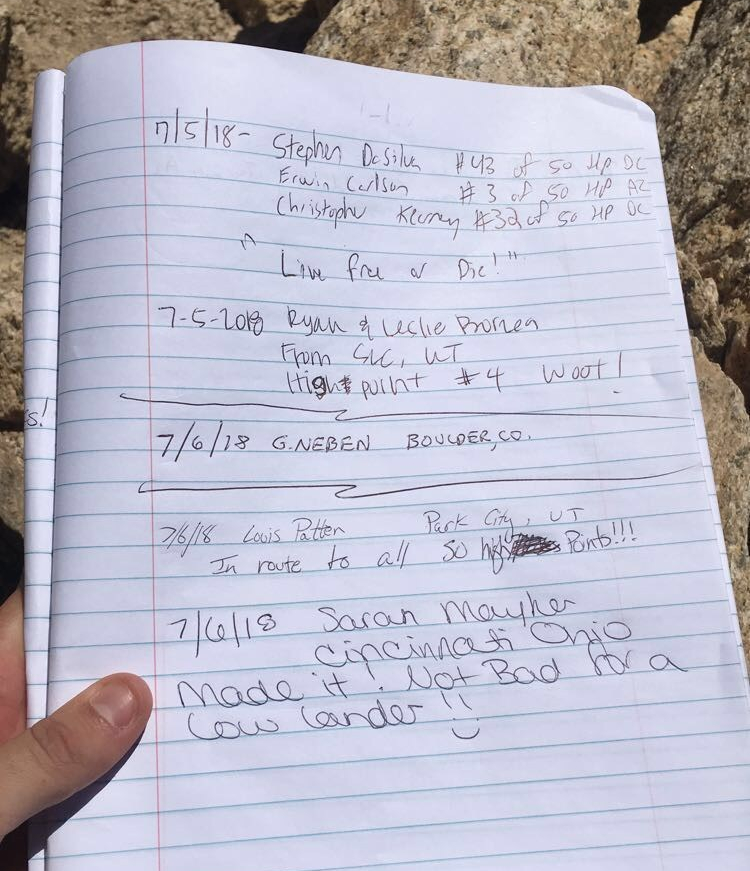 7/5/18- Stephen DaSilva #43 of 50 HP DC
Erwin Carlson #3 of 50 HP AZ
Christopher Kearney #32 of 50 HP DC
"Live free or Die!"
7-5-2018 Ryan & Leslie
From SLC, UT
High point #4 Woot!
s!
7/6/18 G. NEBEN BOULDER, CO.
7/6/18 Louis Patten Park City, UT
In route to all 50 high Points!!!
7/6/18 Sarah Mayher
Cincinnati Ohio
Made it! Not Bad for a
Low Lander!!